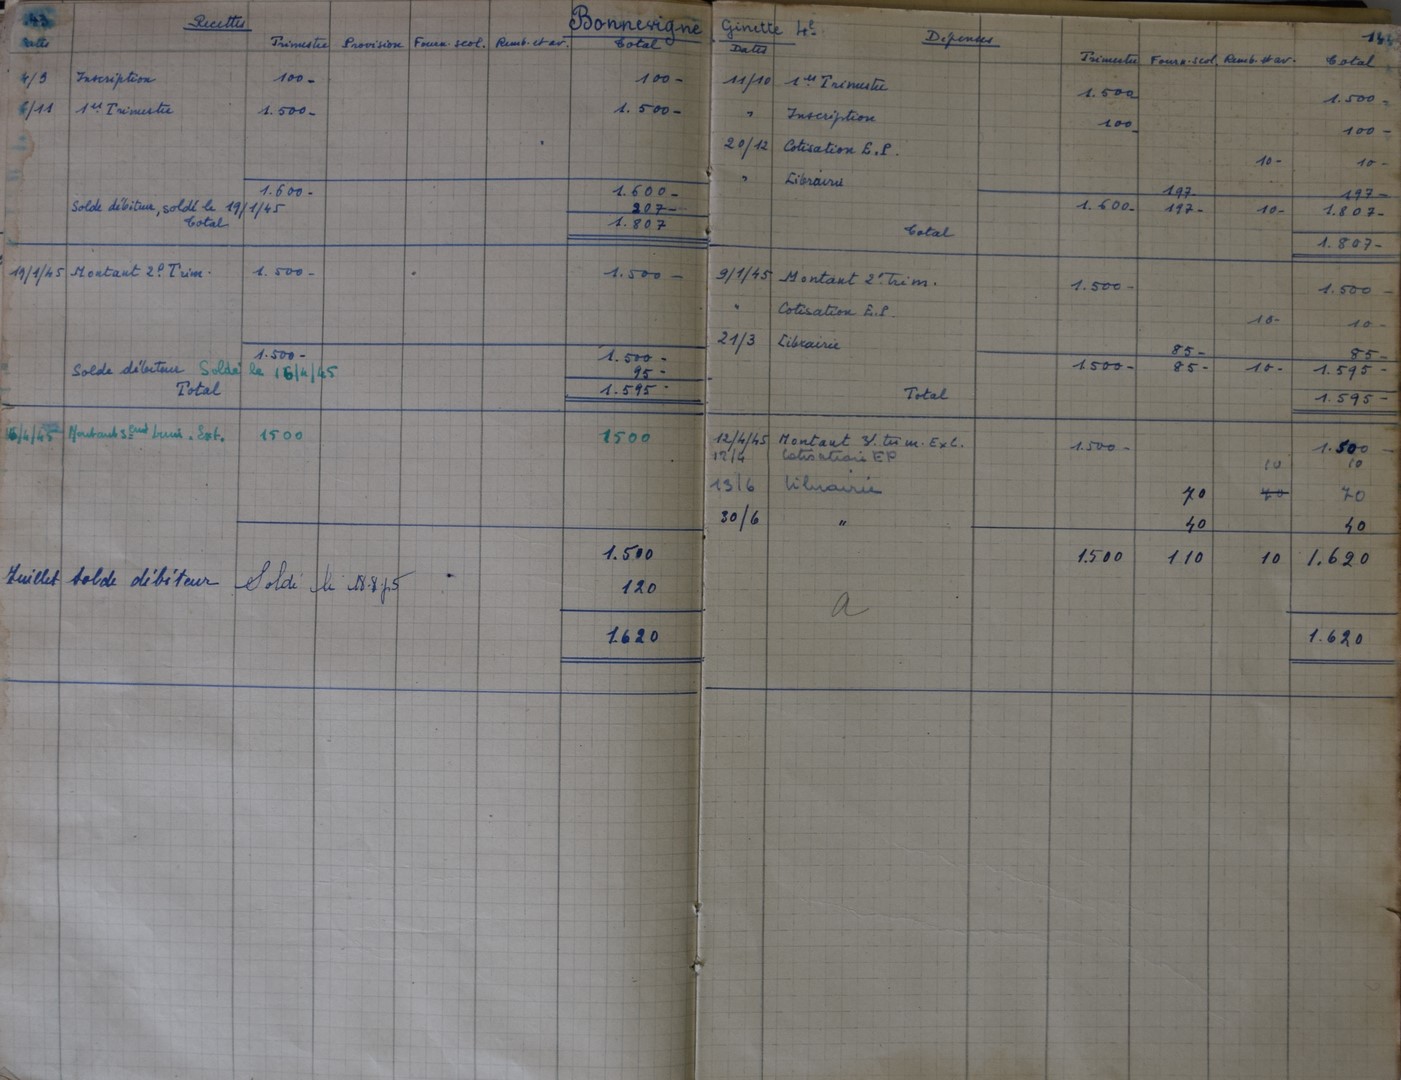 43
Recettes
Bonnesigne
Dates Trimestre Provision Fourn. scol. Remb. et av. Total
4/9 Inscription 100- 100-
6/11 1er Trimestre 1.500- 1.500-
1.600- 1.600-
Solde débiteur, soldé le 19/1/45 207-
Total 1.807
19/1/45 Montant 2e Trim. 1.500- 1.500-
1.500- 1.500-
Solde débiteur Soldé le 16/4/45 95-
Total 1.595-
16/4/45 Montant 3ème trim. Ext. 1500 1500
1.500
Juillet Solde débiteur Soldé le 120
1620
Ginette 4e
Dépenses
Dates Trimestre Fourn. scol. Remb. et av. Total
11/10 1er Trimestre 1.500 1.500-
" Inscription 100 100-
20/12 Cotisation E.P. 10- 10-
" Librairie 197- 197-
1.600- 197- 10- 1.807-
Total 1.807-
9/1/45 Montant 2e Trim. 1.500- 1.500-
" Cotisation E.P. 10- 10-
21/3 Librairie 85- 85-
1500- 85- 10- 1.595-
Total 1.595-
12/4/45 Montant 3e trim. Ext. 1.500- 1.500-
12/4 Cotisation EP 10 10
13/6 Librairie 70 70 70
30/6 " 40 40
1500 110 10 1.620
a
1.620